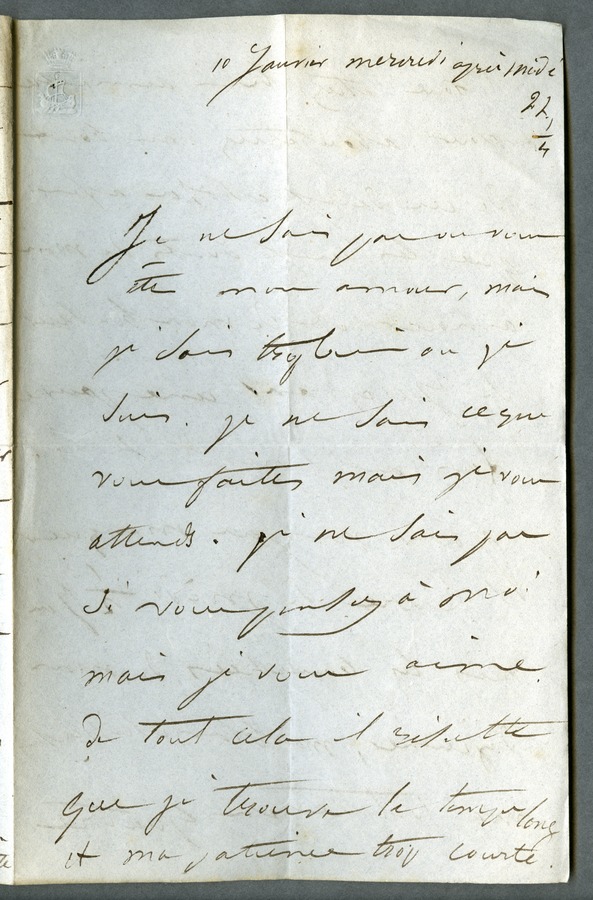 10 Janvier mercredi après midi
2h
1/4
Je ne sais pas où vous
êtes mon amour, mais
je sais trop bien où je
suis. je ne sais ce que
vous faites mais je vous
attends. je ne sais pas
si vous pensez à moi
mais je vous aime.
de tout cela il résulte
que je trouve le temps long
et ma patience trop courte.